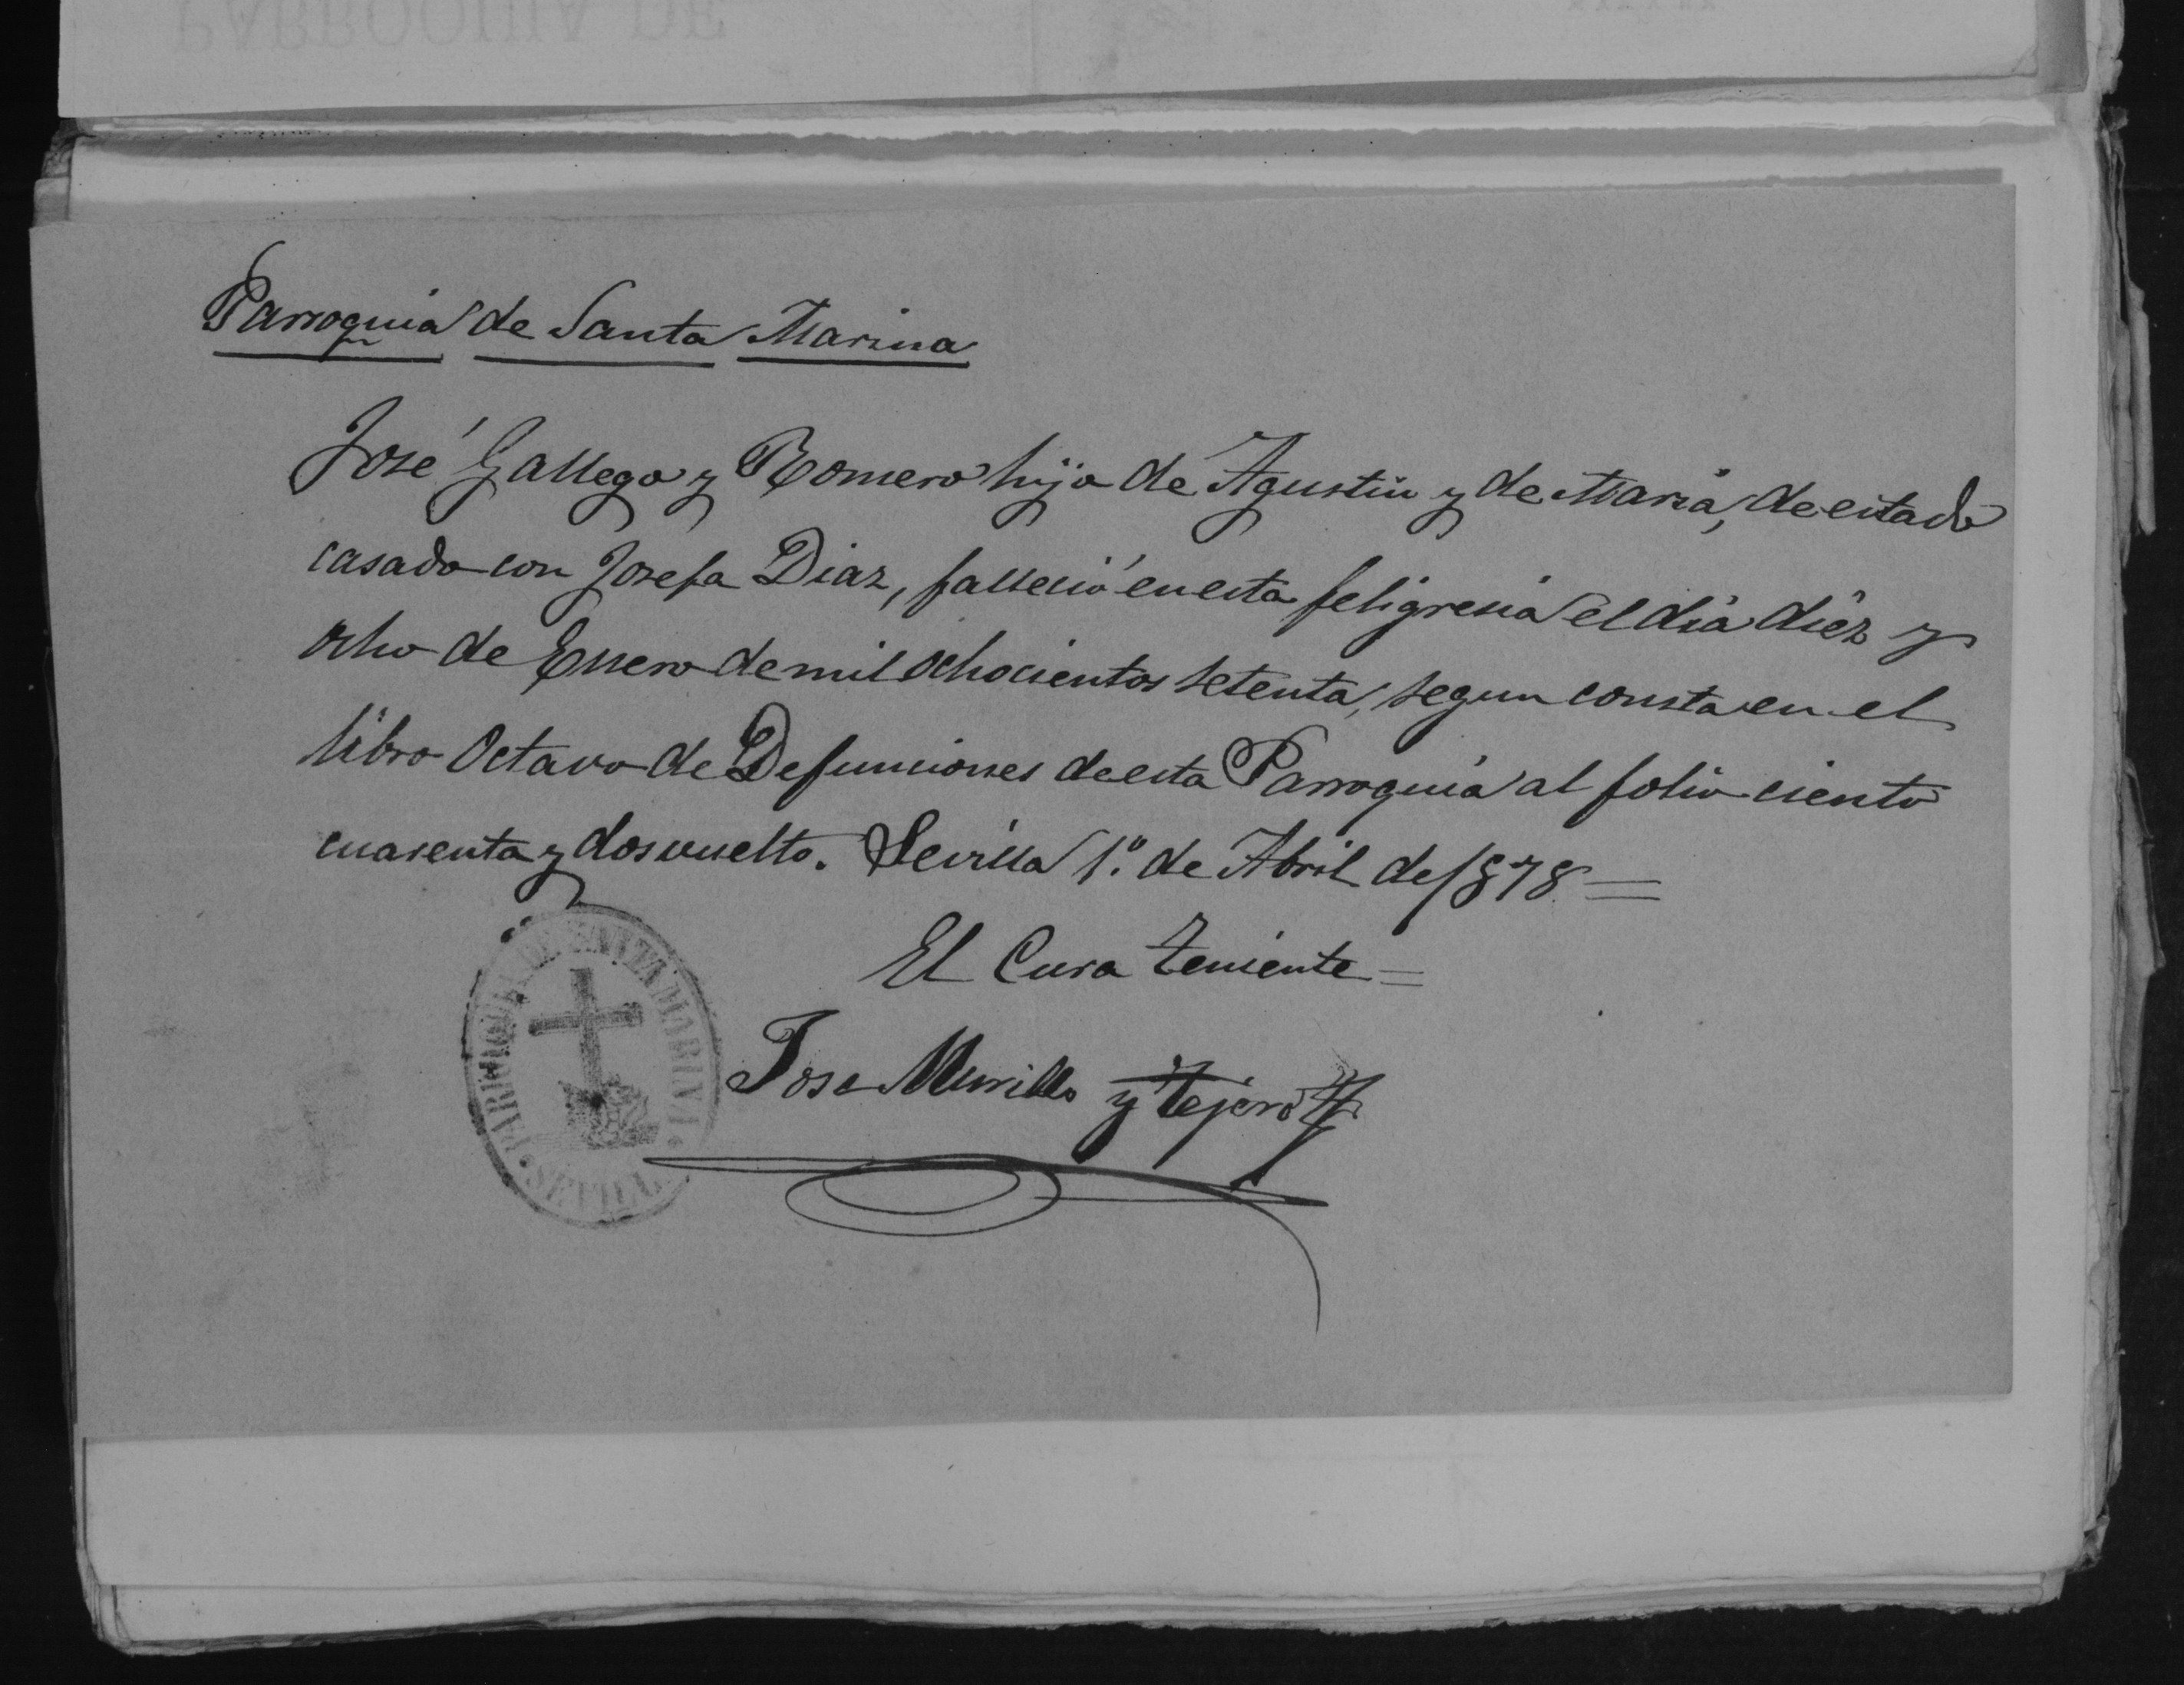 PARROQUIA DE
Parroquia de Santa Marina
José Gallego y Romero hijo de Agustin y de Maria, de estado
casado con Josefa Diaz, falleció en esta feligresia el dia diez y
ocho de Enero de mil ochocientos setenta, segun consta en el
libro Octavo de Defunciones de esta Parroquia al folio ciento
cuarenta y dos vuelto. Sevilla 1º. de Abril de 1878 =
El Cura teniente =
PARROQUIA DE SANTA MARINA
SEVILLA
Jose Murillo y Tejero